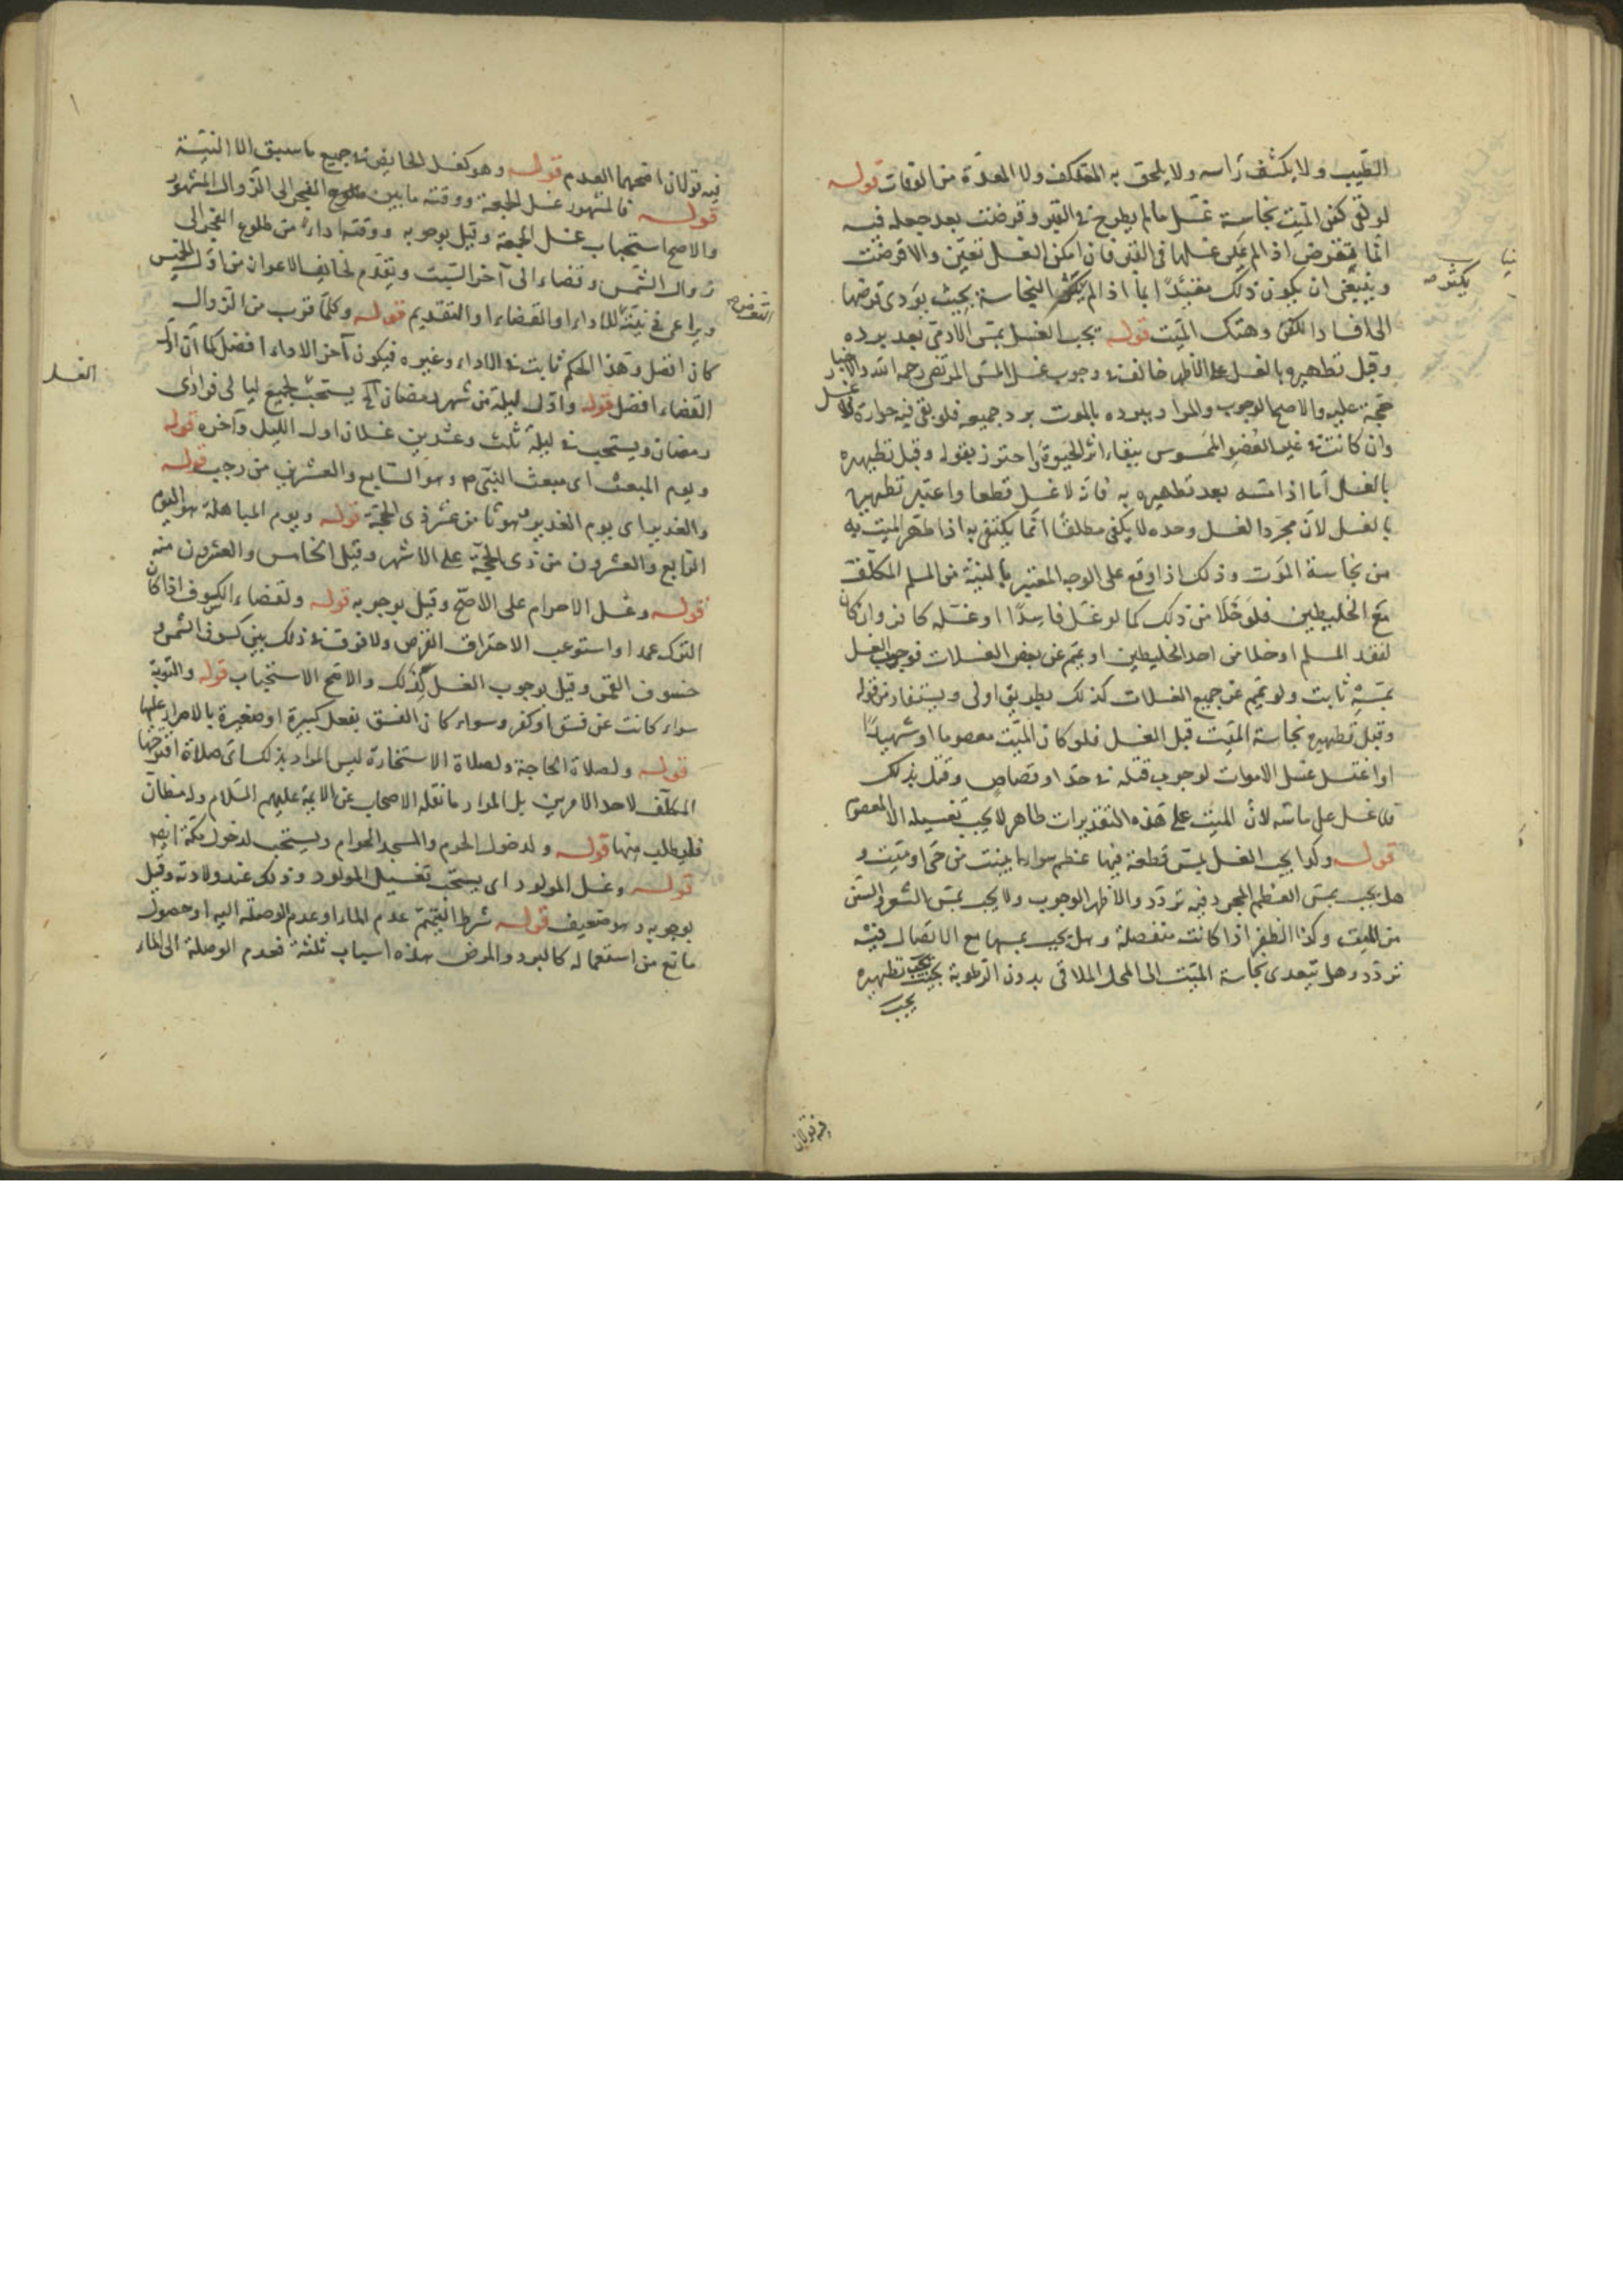 الطيب ولا يكشف راسه ولا يلحق به المعتكف ولا المعتدة من الوفات قوله
لو لقى كفن الميت نجاسة غسل ما لم يطرح في القبر وقرضت بعد جعله فيه
انما يقرض اذا لم يمكن غسلها في القبر فان امكن الغسل تعين والا قرضت
وينبغي ان يكون ذلك مقيدا بما اذا لم يكثر النجاسة بحيث يؤدى قرضها
الى افساد الكفن وهتك الميت قوله يجب الغسل بمس الادمي بعد برده
وقبل تطهيره بالغسل على الاظهر خالف في وجوب غسل المس المرتضى رحمه الله والاخبار
حجة عليه والاصح الوجوب والمراد ببرده بالموت برد جميعه فلو بقى فيه حرارة فلا غسل
وان كانت في غير العضو الممسوس ببقاء اثر الحيوة واحترز بقوله وقبل تطهيره
بالغسل اما اذا مسه بعد تطهيره به فانه لا غسل قطعا واعتبر تطهيره
بالغسل لان مجرد الغسل وحده لا يكفى مطلقا انما يكتفى به اذا طهر الميت به
من نجاسة الموت وذلك اذا وقع على الوجه المعتبر بالنية من المسلم المكلف
مع الخليطين فلو خلا من ذلك كما لو غسل فاسدا او غسله كافر وان كان
لفقد المسلم او خلا من احد الخليطين او يمم عن بعض الغسلات فوجوب الغسل
بمسه ثابت ولو يمم عن جميع الغسلات كذلك بطريق اولى ويستفاد من قوله
وقبل تطهيره نجاسة الميت قبل الغسل فلو كان الميت معصوما او شهيدا
او اغتسل غسل الاموات لوجوب قتله في حد او قصاص وقتل بذلك
فلا غسل على ماسه لان الميت على هذه التقديرات طاهر لا يجب تغسيله الا المعصوم
قوله وكذا يجب الغسل بمس قطعة فيها عظم سواء ابينت من حى او ميت و
هل يجب بمس العظم المجرد فيه تردد والاظهر الوجوب ولا يجب بمس الشعر والسن
من الميت وكذا الظفر اذا كانت منفصلة وهل يجب بمسها مع الاتصال فيه
تردد وهل تتعدى نجاسة الميت الى المحل الملاقى بدون الرطوبة بحيث يجب تطهيره
يجب
فيه قولان
فيه قولان اصحهما العدم قوله وهو كغسل الحايض في جميع ما سبق الا النية
قوله فالمشهور غسل الجمعة ووقته ما بين طلوع الفجر الى الزوال المشهور
والاصح استحباب غسل الجمعة وقيل بوجوبه ووقته اداء من طلوع الفجر الى
زوال الشمس وقضاء الى آخر السبت ويقدم لخائف الاعواز من اول الخميس
ويراعى في نيته للاداء او القضاء او التقديم قوله وكلما قرب من الزوال
كان افضل وهذا الحكم ثابت في الاداء وغيره فيكون آخر الاداء افضل كما ان اول
القضاء افضل قوله واول ليلة من شهر رمضان يستحب لجميع ليالى فرادى
رمضان ويستحب في ليلة ثلث وعشرين غسلان اول الليل وآخره قوله
ويوم المبعث اى مبعث النبي ص وهو السابع والعشرين من رجب قوله
والغدير اى يوم الغدير هو ثامن عشر ذى الحجة قوله ويوم المباهلة هو اليوم
الرابع والعشرون من ذى الحجة على الاشهر وقيل الخامس والعشرون منه
قوله وغسل الاحرام على الاصح وقيل بوجوبه قوله ولقضاء الكسوف اذا كان
الترك عمدا واستوعب الاحتراق القرص ولا فرق في ذلك بين كسوف الشمس و
خسوف القمر وقيل بوجوب الغسل كذلك والاصح الاستحباب قوله والتوبة
سواء كانت عن فسق او كفر وسواء كان الفسق بفعل كبيرة او صغيرة بالاصرار عليها
قوله ولصلاة الحاجة ولصلاة الاستخارة ليس المراد بذلك اى صلاة اقترحها
المكلف لاحد الامرين بل المراد ما نقله الاصحاب عن الائمة عليهم السلام وله مظان
فليطلب منها قوله ولدخول الحرم والمسجد الحرام ويستحب لدخول مكة ايضا
قوله وغسل المولود اى يستحب تغسيل المولود وذلك عند ولادته وقيل
بوجوبه وهو ضعيف قوله شرط التيمم عدم الماء او عدم الوصلة اليه او حصول
مانع من استعماله كالبرد والمرض هذه اسباب ثلثة فعدم الوصلة الى الماء